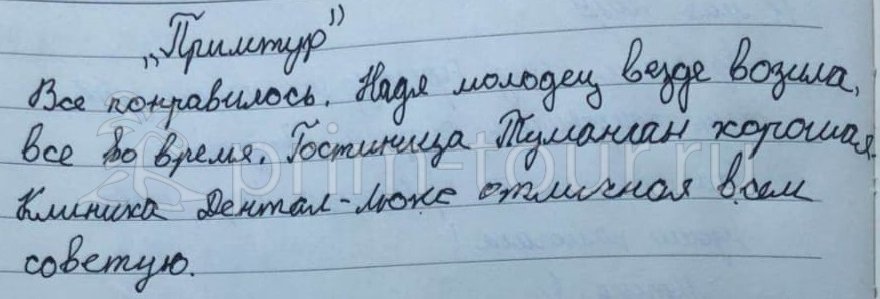 „Примтур”
Все понравилось. Надя молодец везде возила,
все во время. Гостиница Туманган хорошая.
Клиника Дентал-люкс отличная всем
советую.
prim-tour.ru